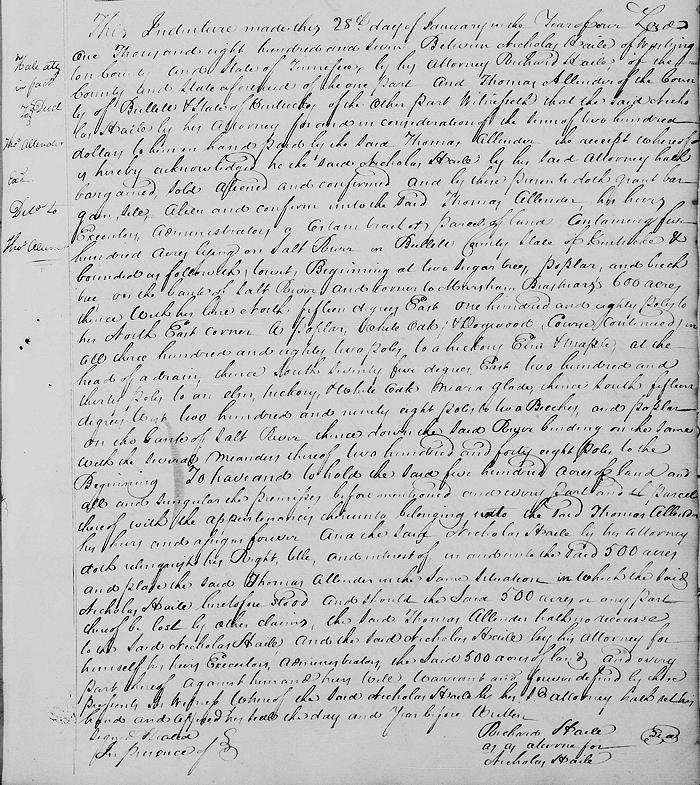 This Indenture made this 28th day of January in the Year of our Lord
One Thousand eight hundred and seven Between Nicholas Haile of
ton County and State of Tennesee, by his Attorney Richard Haile of the
County and State aforesaid of the one part And Thomas Allender of the Coun
ty of Bullett & State of Kentucky of the other part Witnesseth that the said Nicho
las Haile by his Attorney for and in consideration of the sum of two hundred
dollars to him in hand paid by the said Thomas Allender the receipt whereof
is hereby acknowledged he the said Nicholas Haile by his said Attorney hath
bargained, sold aliened and confirmed and by these presents doth grant bar
gain, sell, Alien and confirm unto the said Thomas Allender, his heirs
Executors, Administrators a certain tract or parcel of land Containing five
hundred Acres lying on Salt River in Bullett County State of Kentucke &
bounded as followeth, towit, Beginning at two sugar trees, poplar, and beech
tree on the bank of Salt River and corner to Marsham Brashears 600 acres
thence With his line North fifteen degrees East one hundred and eighty poles to
his North East corner A poplar, White Oak, & Dogwood, Course Continued in
all three hundred and eighty two poles to a hickory Elm & Maple, at the
head of a drain, thence South seventy five degrees East two hundred and
thirty poles to an elm, hickory, & White Oak near a Glade, thence South fifteen
degrees West two hundred and ninety eight poles to two Beeches, and poplar
on the bank of Salt River thence down the said River binding on the same
with the several Meanders thereof two hundred and forty eight poles to the
Beginning To have and to hold the said five hundred Acres of land and
all and singular the premises before mentioned and every part and parcel
thereof with the appurtenances thereunto belonging unto the said Thomas Allender
his heirs and assigns forever And the said Nicholas Haile by his Attorney
doth relinquish his Right, title, and interest of in and unto the said 500 acres
and place the said Thomas Allender in the Same Situation in which the said
Nicholas Haile heretofore stood And should the said 500 acres or any part
thereof be lost by other claims, the said Thomas Allender hath no recourse
to the said Nicholas Haile And the said Nicholas Haile by his attorney for
himself his heirs Executors, administrators, the said 500 acres of land and every
part thereof against him and his heirs will Warrant and forever defend by these
presents In Witness Whereof the said Nicholas Haile by his sd attorney hath set his
hand and affixed his seal the day and Year before Written
Signed Sealed
In presence of
Richard Haile
as attorne for
Nicholas Haile
Seal
Haile atty
in fact
To Deed
Thos Allender
Exd
Deld to
Thos Allen